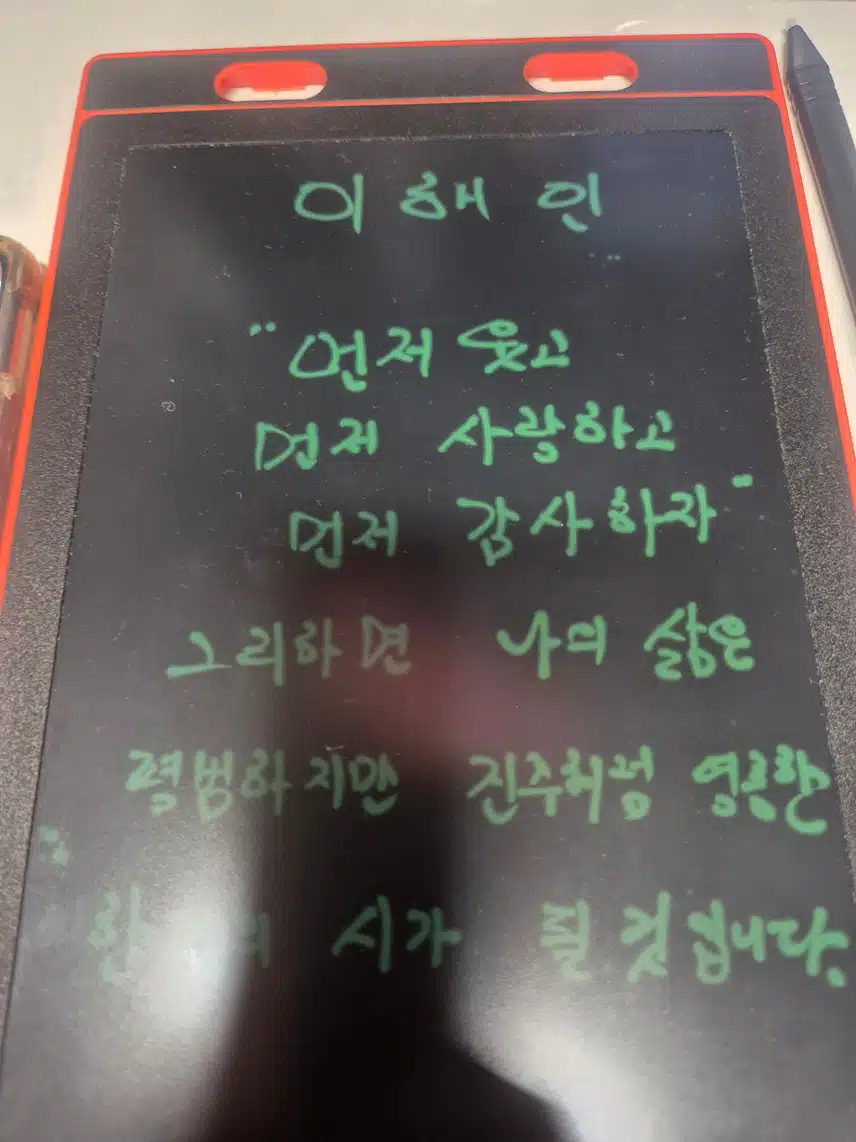 이해인
"먼저 웃고
먼저 사랑하고
먼저 감사하자"
그리하면 나의 삶은
평범하지만 진주처럼 영롱한
시가 될 것입니다.